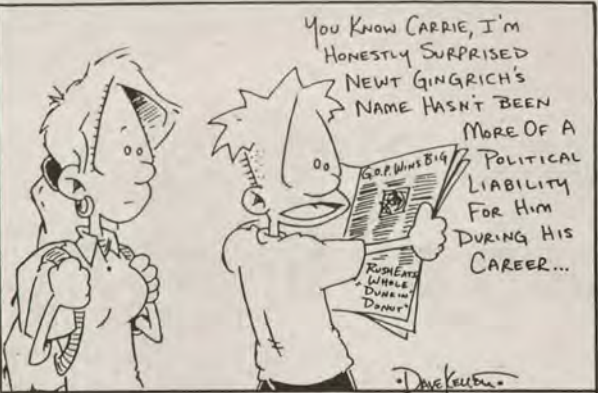 YOU KNOW CARRIE, I'M
HONESTLY SURPRISED
NEWT GINGRICH'S
NAME HASN'T BEEN
MORE OF A
POLITICAL
LIABILITY
FOR HIM
DURING HIS
CAREER...
G.O.P. WINS BIG
RUSH EATS
WHOLE
"DUNKIN'
DONUT"
·DAVE KELLETT·